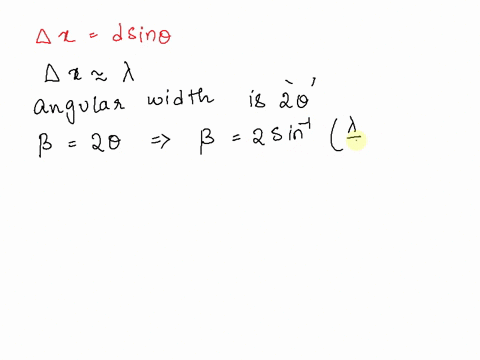 Δx = dsinθ
Δx ≈ λ
angular width is '2θ'
β = 2θ ⇒ β = 2 sin⁻¹ (λ